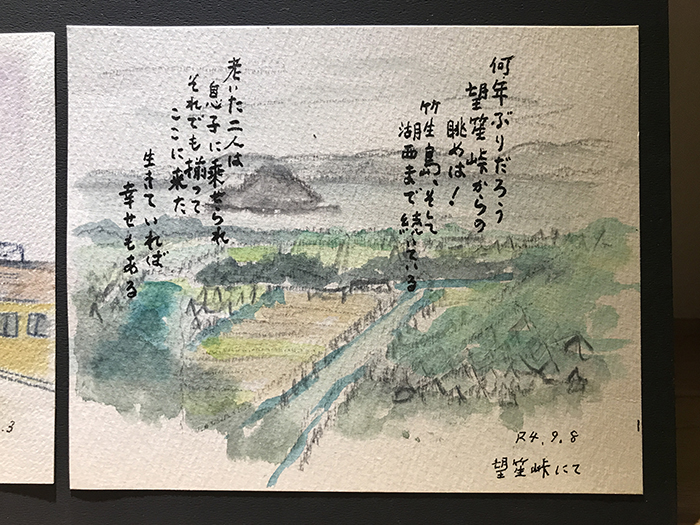 何年ぶりだろう
望笙峠からの
眺めは!
竹生島、そして
湖西まで続いている
老いた二人は
息子に乗せられ
それでも揃って
ここに来た
生きていれば
幸せもある
R4.9.8
望笙峠にて
.3